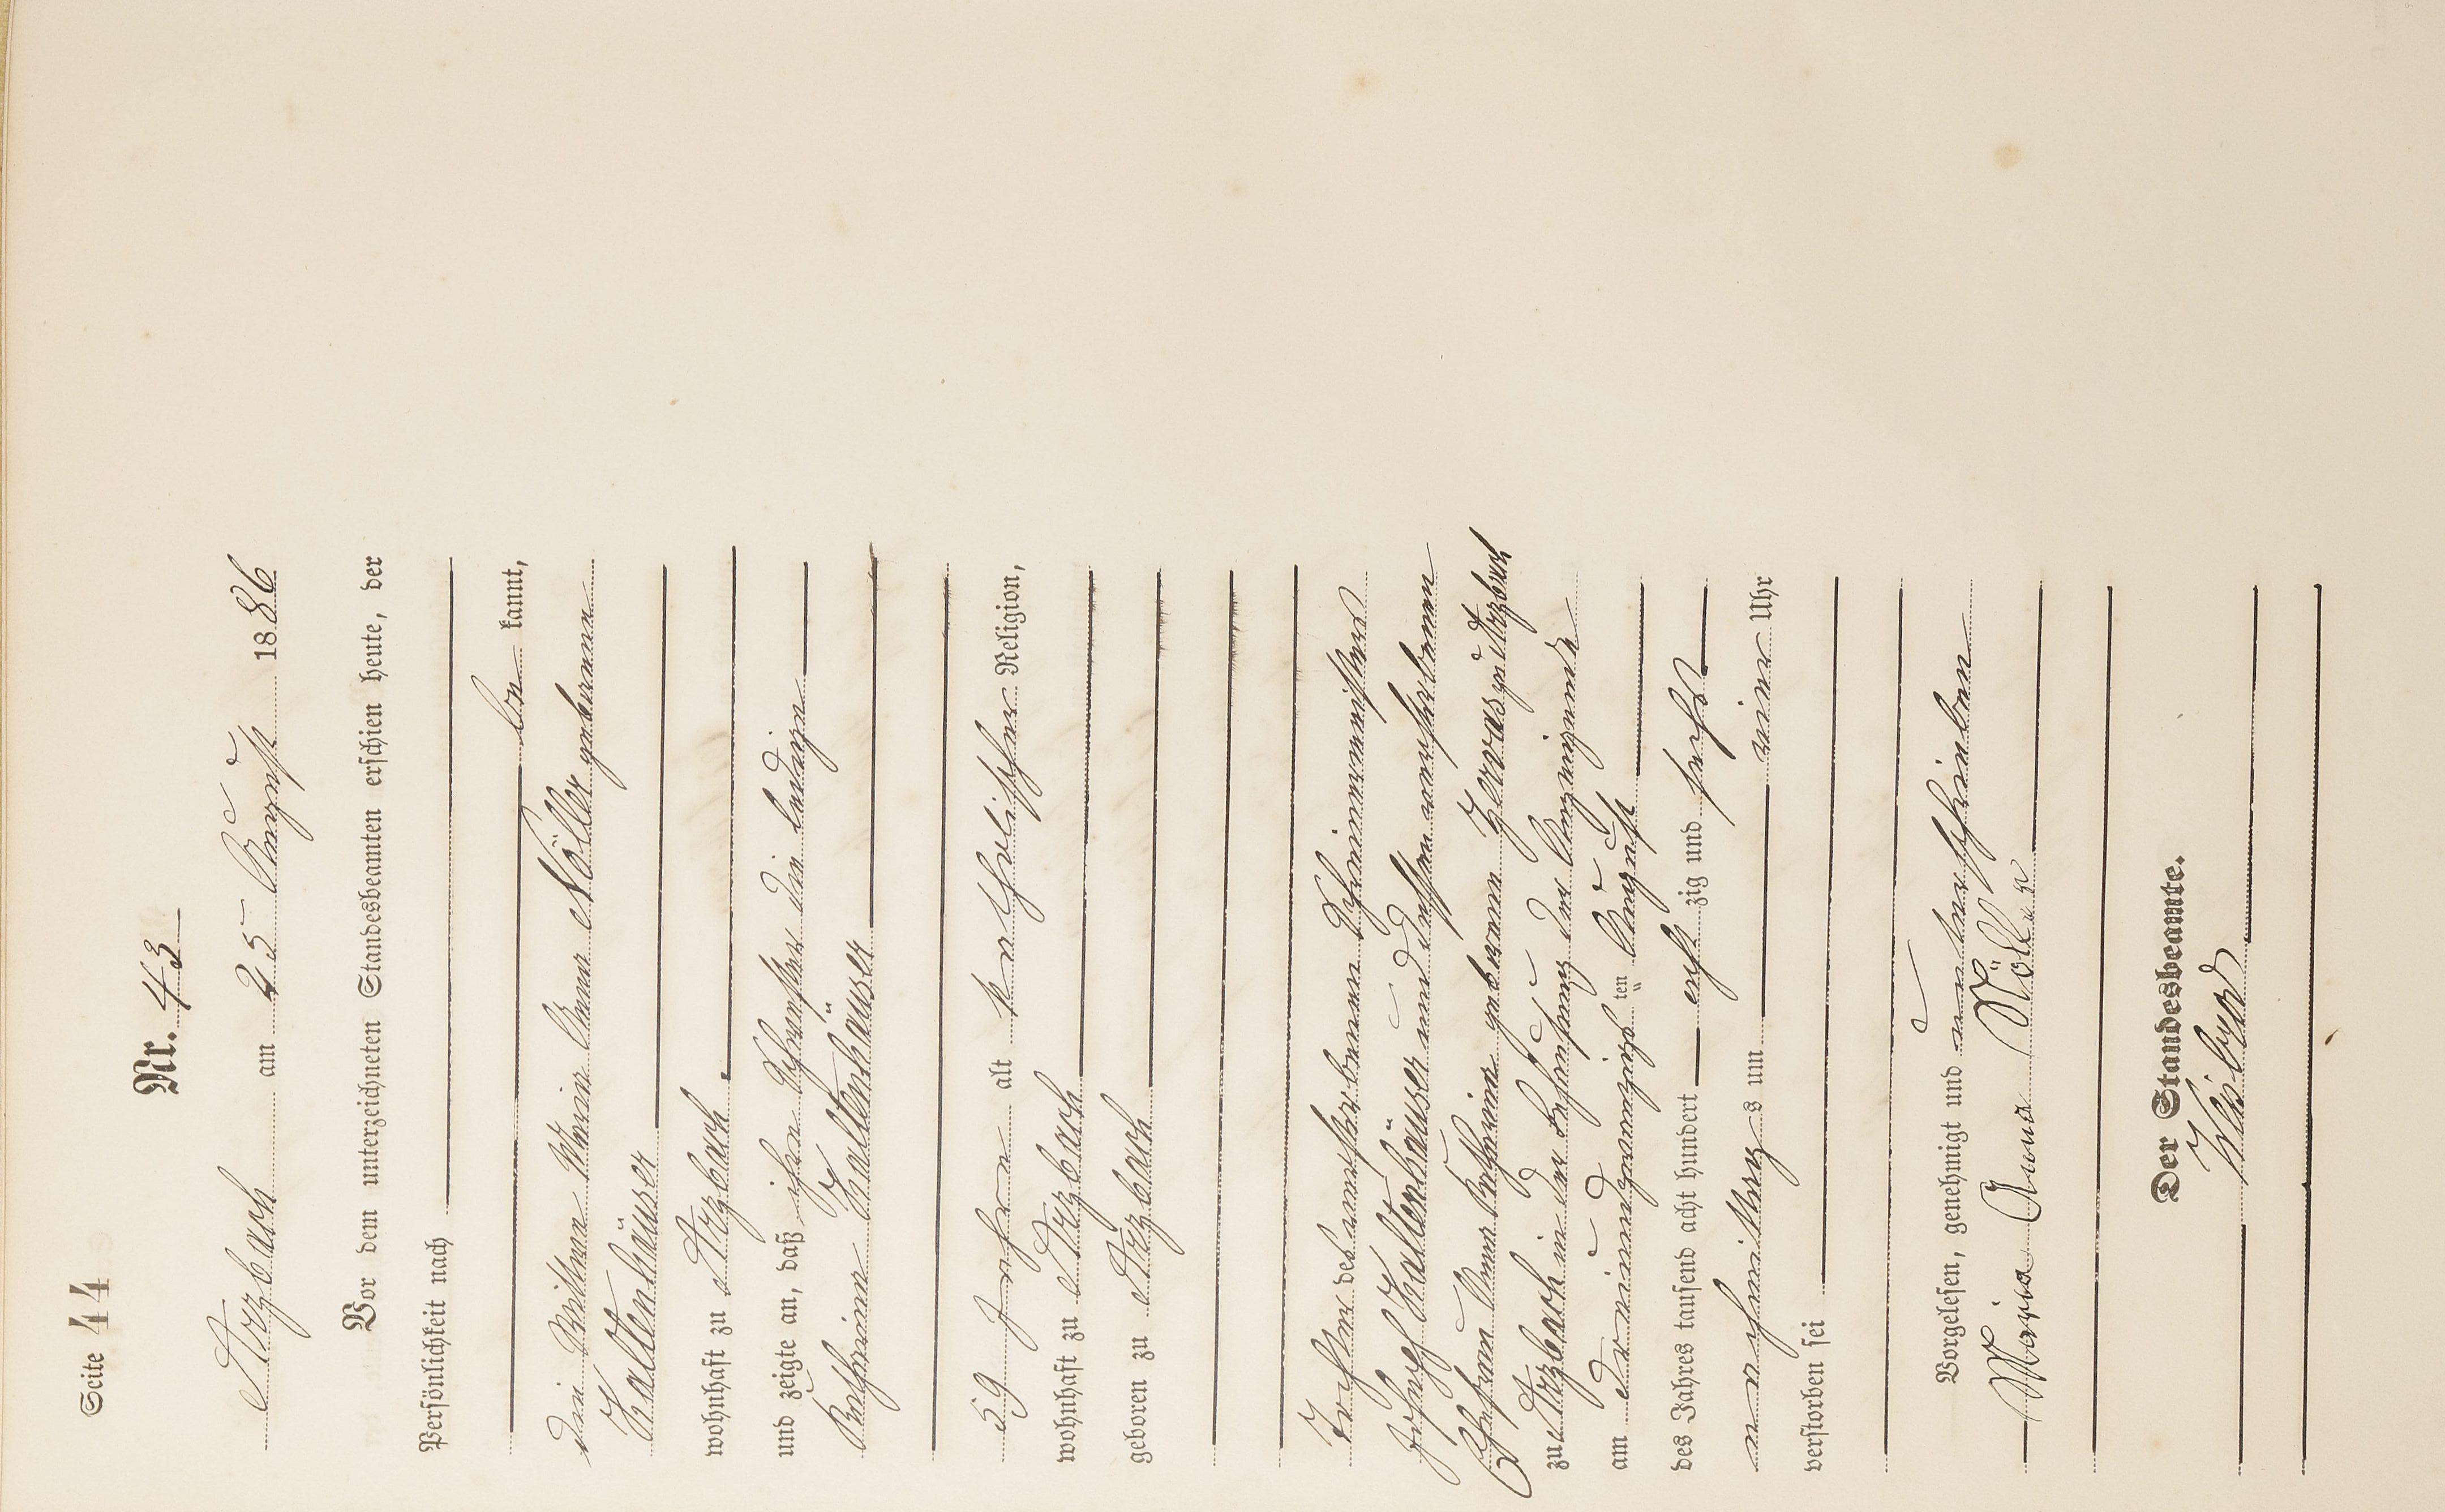 Seite 44
Nr. 43
Arzbach am 25 August 1886
Vor dem unterzeichneten Standesbeamten erschien heute, der
Persönlichkeit nach
be kannt,
die Wittwe Maria Anna Nöller geborene
Kaltenhäuser
wohnhaft zu Arzbach.
und zeigte an, daß ihre Schwester die ledige
Katharina Kaltenhäuser
59 Jahre alt katholischer Religion,
wohnhaft zu Arzbach
geboren zu Arzbach
Tochter des verstorbenen Schreinermeisters
Joseph Kaltenhäuser und dessen verstorbenen
Ehefrau Anna Katharina geborenen Gervas zu Arzbach
zu Arzbach in der Behausung der Anzeigende
am dreiundzwanzigs ten August
des Jahres tausend acht hundert acht zig und sechs
nachmittag s um einer Uhr
verstorben sei
Vorgelesen, genehmigt und unterschrieben
Maria Anna Nöller
Der Standesbeamte.